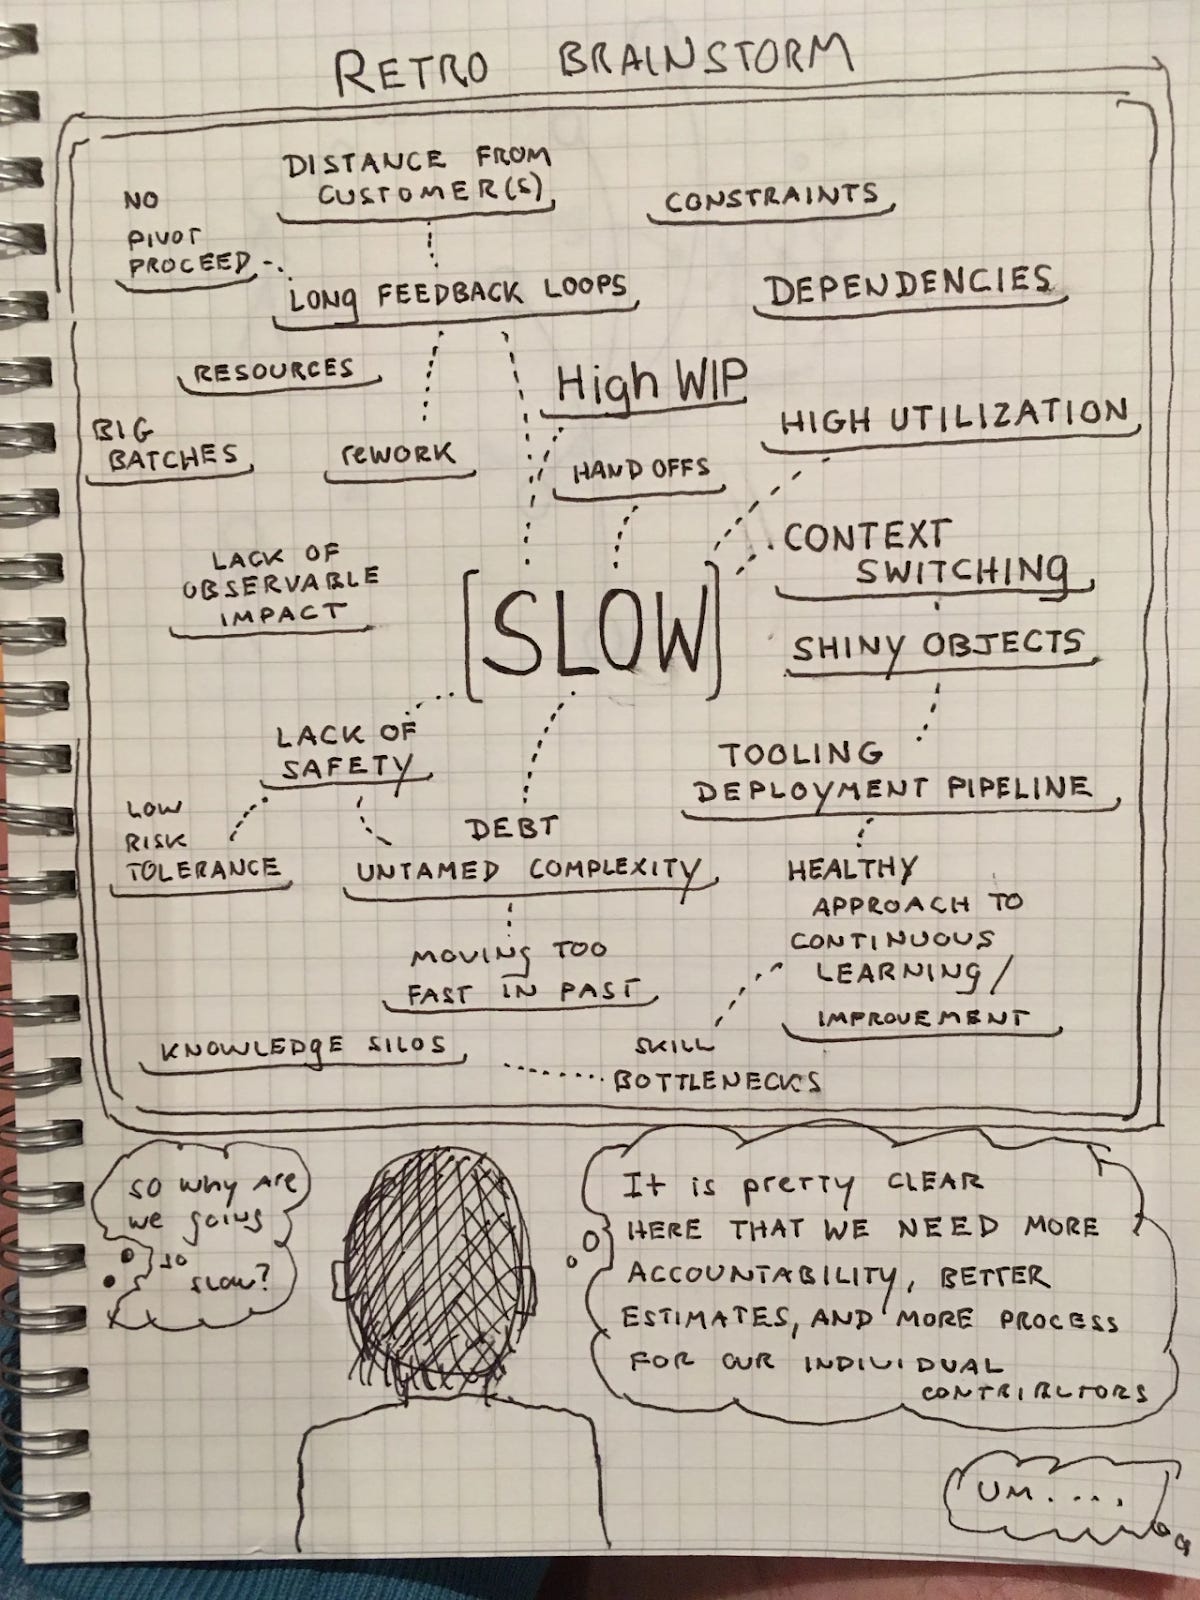 RETRO BRAINSTORM
DISTANCE FROM
CUSTOMER(S)
NO
PIVOT
PROCEED
CONSTRAINTS
LONg FEEDBACK LOOPS
DEPENDENCIES
RESOURCES
High WIP
BIG
BATCHES
reWORK
HIGH UTILIZATION
HAND OFFS
LACK OF
OBSERVABLE
IMPACT
CONTEXT
SWITCHINg
[SLOW]
SHINY OBJECTS
LACK OF
SAFETY
TOOLING
DEPLOYMENT PIPELINE
LOW
RISK
TOLERANCE
DEBT
UNTAMED COMPLEXITY
HEALTHY
APPROACH TO
CONTINUOUS
LEARNING/
IMPROVEMENT
MOVINg TOO
FAST IN PAST
KNOWLEDgE SILOS
SKILL
BOTTLENECKS
SO why Are
we goins
so
slow?
It is pretty CLEAR
HERE THAT WE NEED MORE
ACCOUNTABILITY, BETTER
ESTIMATES, AND MORE PROCESS
FOR OUR INDIVIDUAL
CONTRIBUTORS
UM....